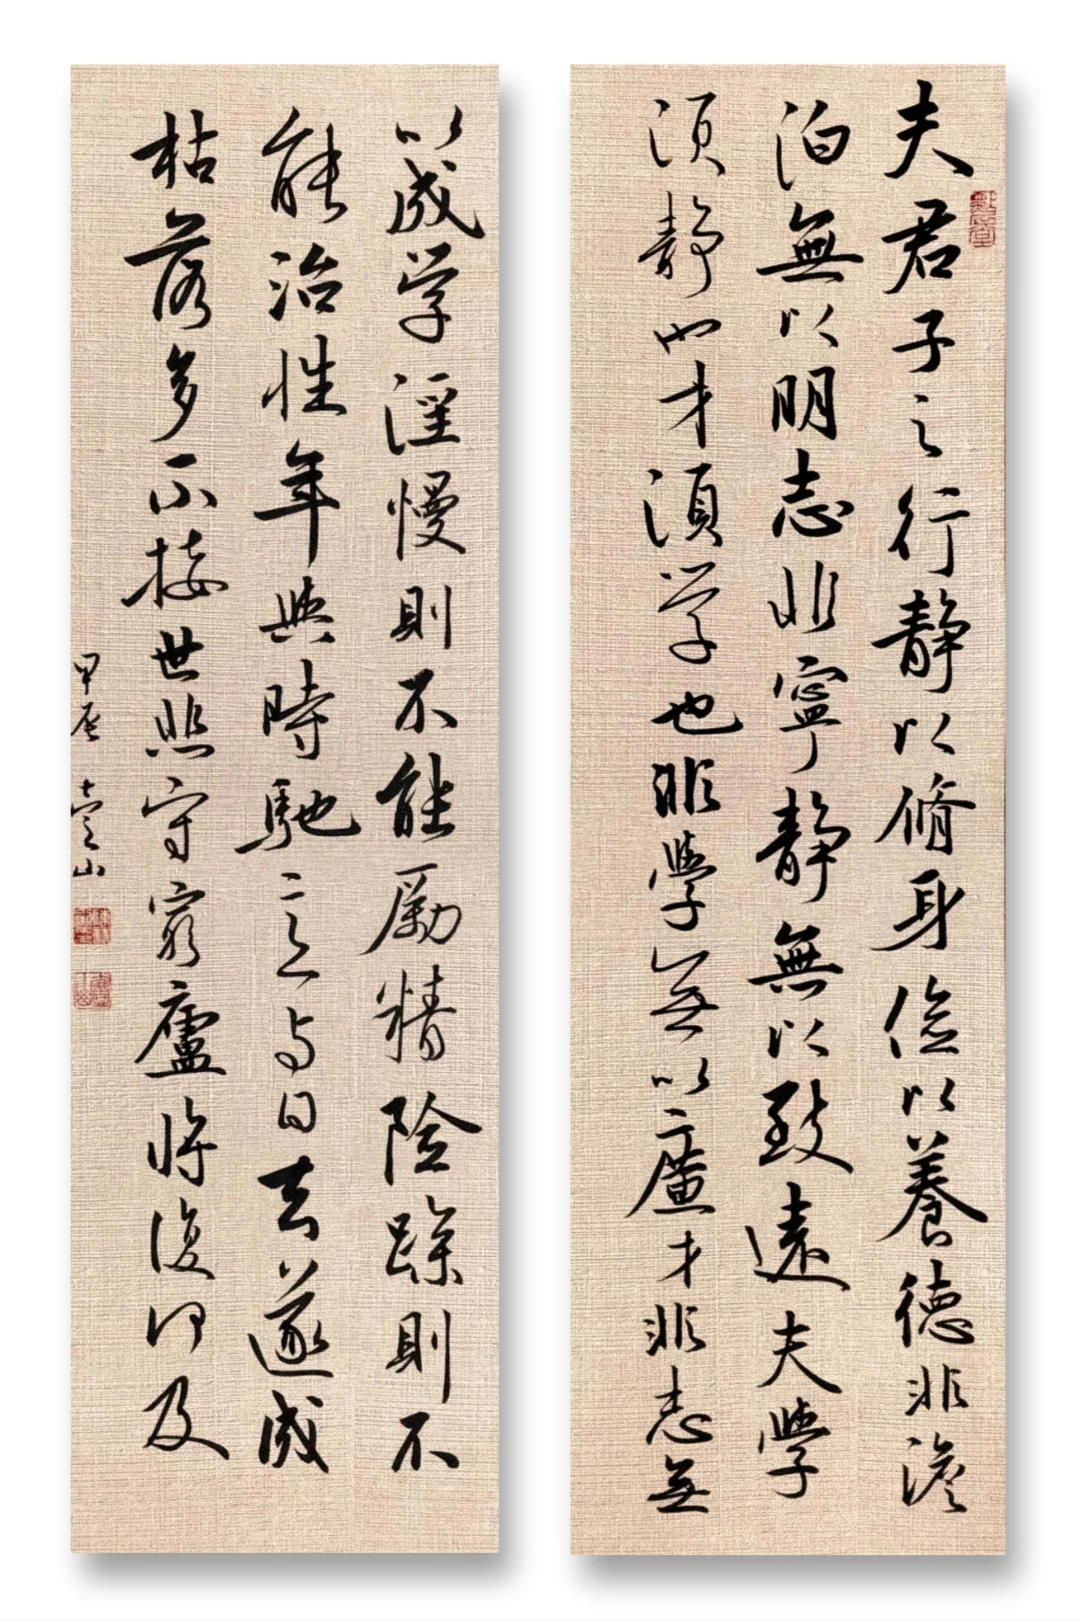 夫君子之行静以脩身俭以養德非澹
泊無以明志非寧静無以致遠夫學
須静也才須学也非學無以廣才非志無
以成学淫慢則不能励精险躁則不
能治性年與時馳意与日去遂成
枯落多不接世悲守窮廬将復何及
甲辰